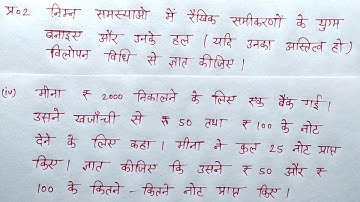 प्र०2 निम्न समस्याओं में रैखिक समीकरणों के युग्म
बनाइए और उनके हल ( यदि उनका अस्तित्व हो )
विलोपन विधि से ज्ञात कीजिए ।
(iv) मीना ₹ 2000 निकालने के लिए एक बैंक गई ।
उसने खजाँची से ₹ 50 तथा ₹ 100 के नोट
देने के लिए कहा । मीना ने कुल 25 नोट प्राप्त
किए । ज्ञात कीजिए कि उसने ₹ 50 और ₹
100 के कितने - कितने नोट प्राप्त किए ।